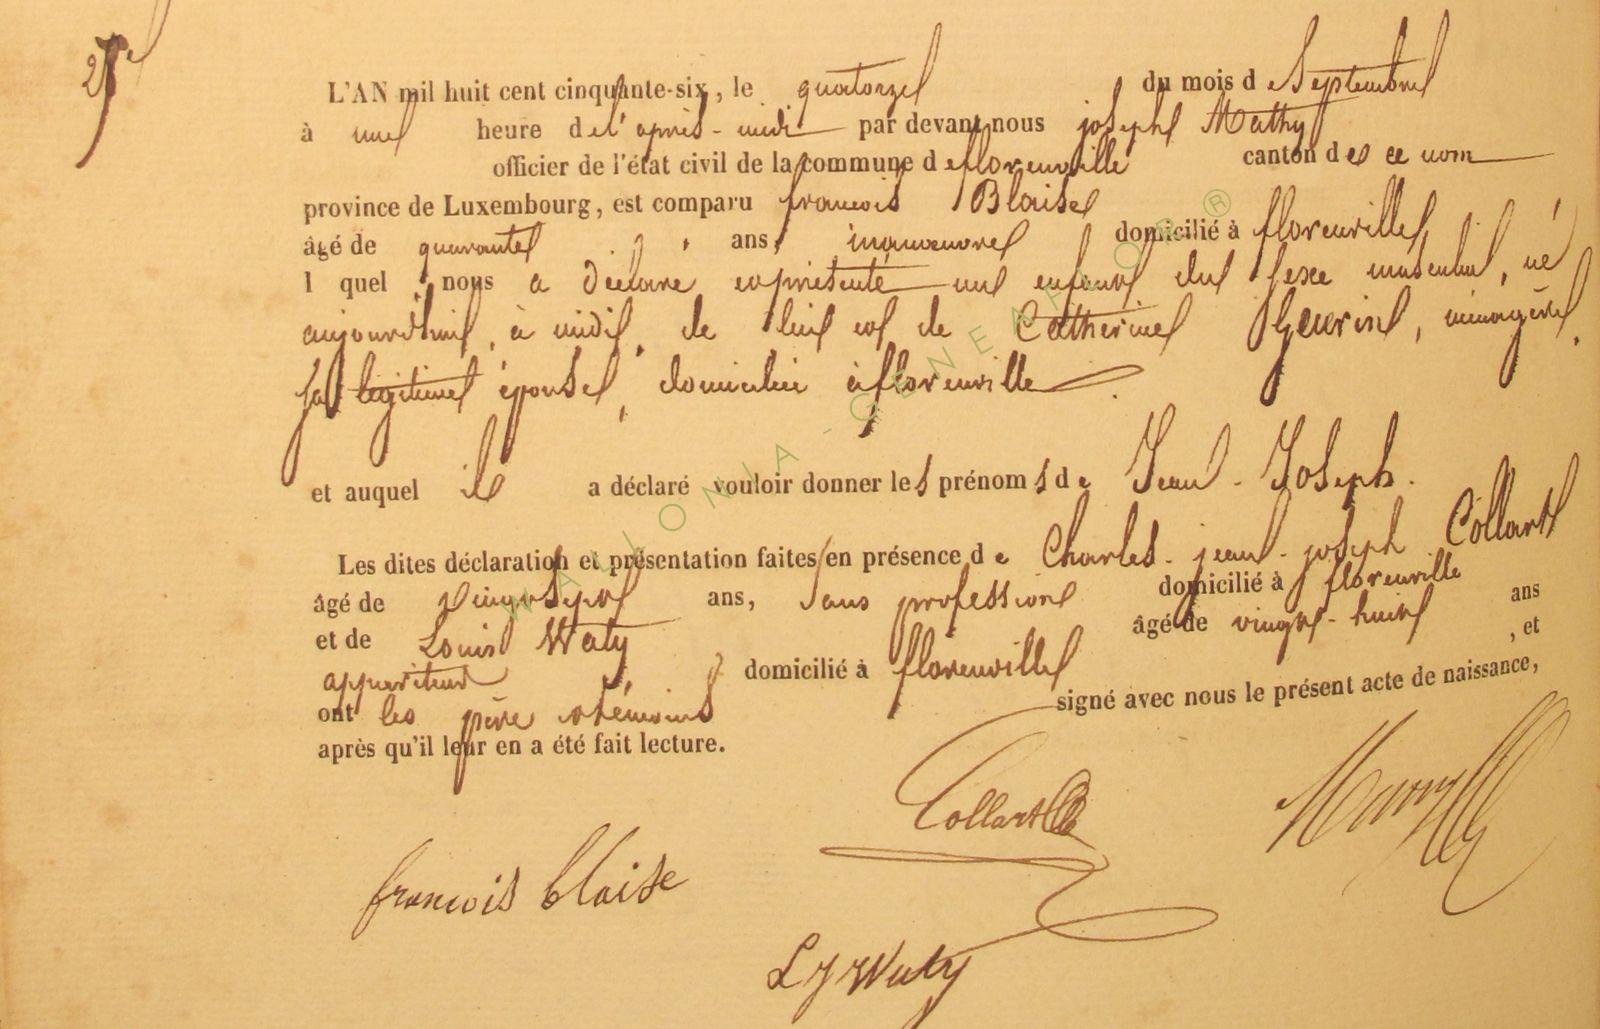 L'AN mil huit cent cinquante-six, le quatorze du mois de Septembre
à une heure de l'après-midi par devant nous joseph Mathy
officier de l'état civil de la commune de florenville canton de ce nom
province de Luxembourg, est comparu francois Blaise
âgé de quarante ans, manoeuvre domicilié à florenville,
l quel nous a déclaré et présenté un enfant du sexe masculin, né
aujourd'hui, à midi, de lui et de Catherine Guerin, ménagère,
sa légitime épouse, domiciliée à florenville
et auquel il a déclaré vouloir donner les prénoms de Jean-Joseph.
Les dites déclaration et présentation faites en présence de Charles-jean-joseph Collart
âgé de vingt sept ans, sans profession domicilié à florenville
et de Louis Waty âgé de vingt-huit ans
appariteur domicilié à florenville, et
ont les père et témoins signé avec nous le présent acte de naissance,
après qu'il leur en a été fait lecture.
Collart
francois blaise
L J Waty
WALLONIA-GENEALOR ®